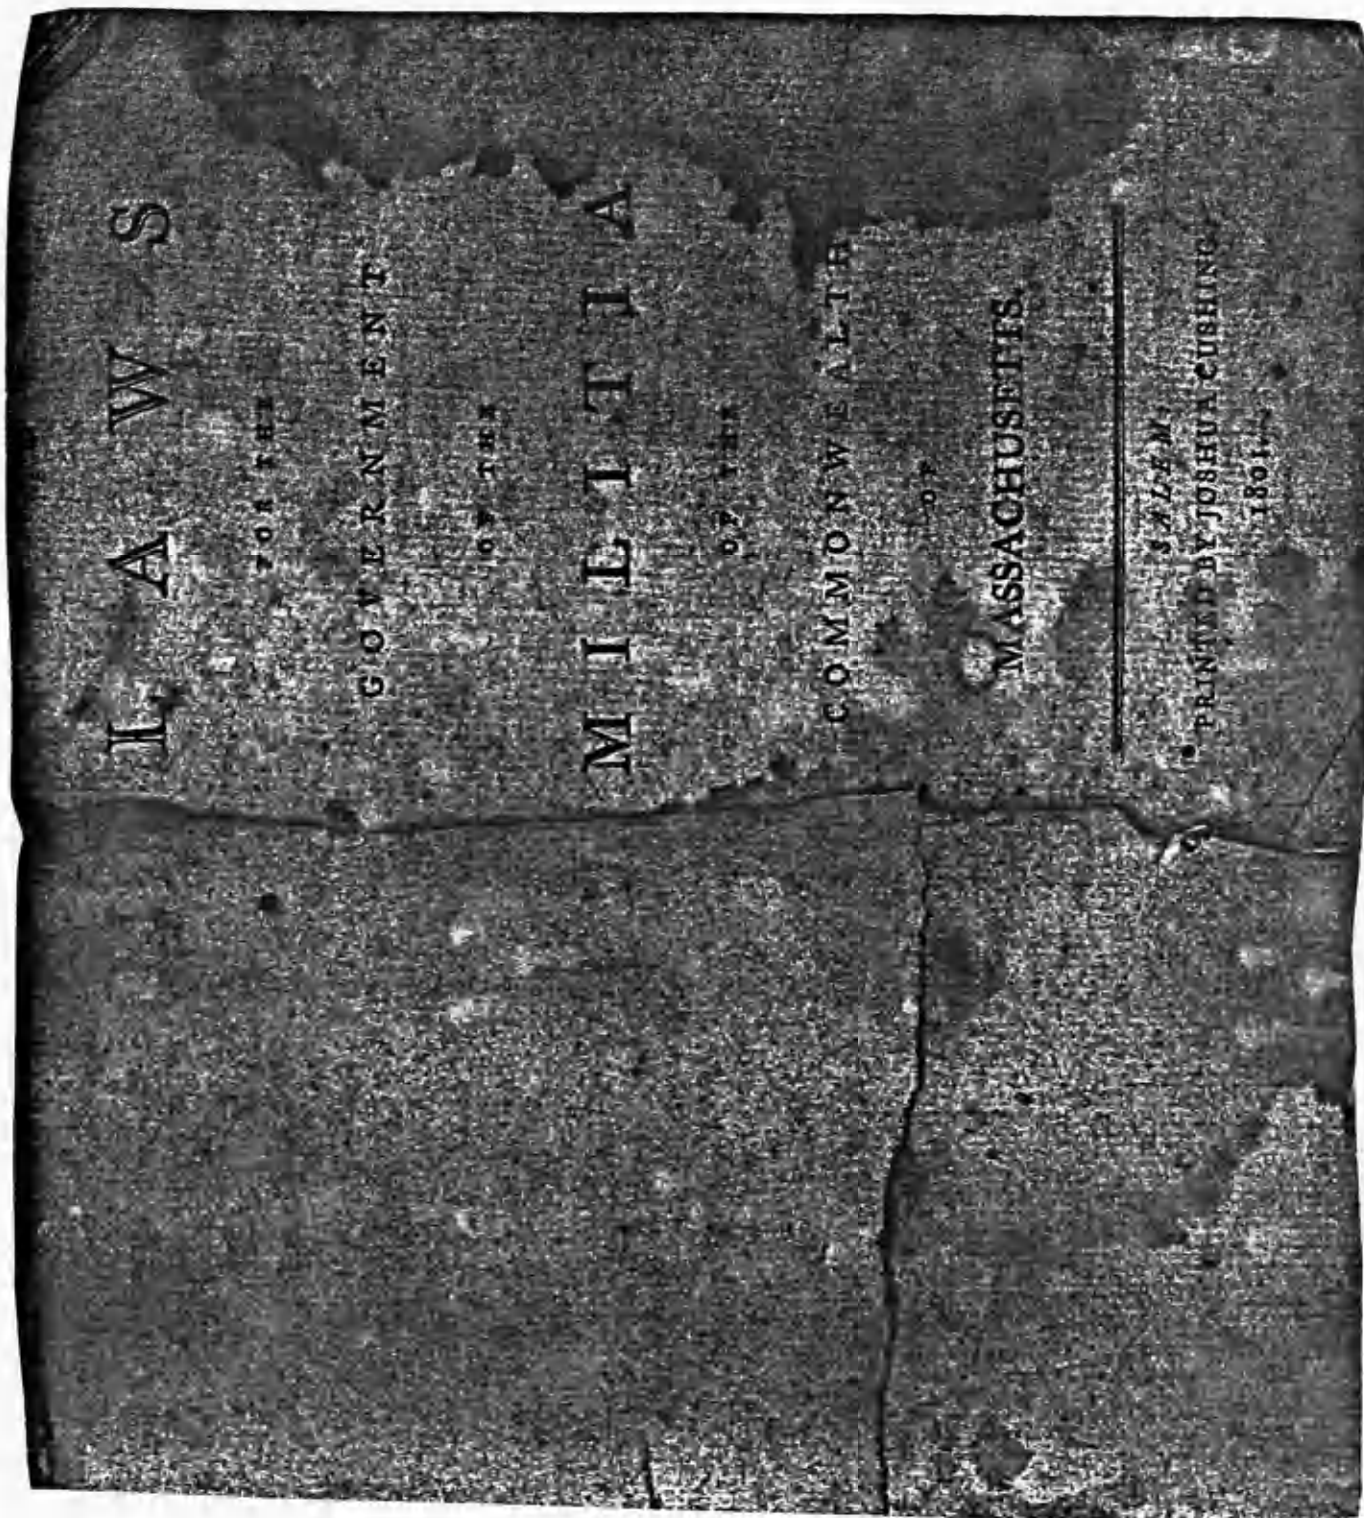 L A W S
FOR THE
GOVERNMENT
OF THE
MILITIA
OF THE
COMMONWEALTH
OF
MASSACHUSETTS.
SALEM:
PRINTED BY JOSHUA CUSHING.
1801.